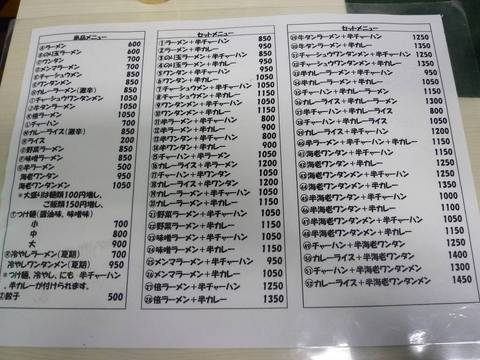 単品メニュー
ラーメン 600
のり玉ラーメン 650
ワンタン 700
メンマラーメン 850
チャーシュウメン 850
ワンタンメン 850
カレーラーメン(激辛) 850
チャーシュウワンタンメン 1050
牛タンラーメン 1050
倍ラーメン 1050
チャーハン 700
カレーライス(激辛) 850
ライス 200
野菜ラーメン 850
味噌ラーメン 850
半ラーメン 500
海老ワンタン 850
海老ワンタンメン 1050
※大盛りは麺類100円増し、
ご飯類150円増し、
つけ麺(醤油味、味噌味)
小 700
中 800
大 900
冷やしラーメン(夏期) 700
冷やしワンタンメン(夏期) 950
※つけ麺、冷やし、にも 半チャーハン
、半カレーが付けられます。
餃子 500
セットメニュー
①ラーメン+半チャーハン 850
②ラーメン+半カレー 950
③のり玉ラーメン+半チャーハン 900
④のり玉ラーメン+半カレー 1000
⑤ワンタン+半チャーハン 950
⑥ワンタン+半カレー 1050
⑦チャーシュウメン+半チャーハン 1050
⑧チャーシュウメン+半カレー 1150
⑨ワンタンメン+半チャーハン 1050
⑩ワンタンメン+半カレー 1150
⑪半ラーメン+半チャーハン 800
⑫半ラーメン+半カレー 900
⑬半ワンタン+半チャーハン 800
⑭半ワンタン+半カレー 900
⑮チャーハン+半ラーメン 1050
⑯カレーライス+半ラーメン 1200
⑰チャーハン+半ワンタン 1050
⑱カレーライス+半ワンタン 1200
⑲カレーラーメン+半チャーハン 1050
⑳カレーラーメン+半カレー 1150
21野菜ラーメン+半チャーハン 1050
22野菜ラーメン+半カレー 1150
23味噌ラーメン+半チャーハン 1050
24味噌ラーメン+半カレー 1150
25メンマラーメン+半チャーハン 1050
26メンマラーメン+半カレー 1150
27倍ラーメン+半チャーハン 1250
28倍ラーメン+半カレー 1350
セットメニュー
牛タンラーメン+半チャーハン 1250
牛タンラーメン+半カレー 1350
チャーシュウワンタンメン+半チャーハン 1250
チャーシュウワンタンメン+半カレー 1350
チャーシュウメン+半ラーメン 950
カレーライス+半ラーメン 1050
チャーハン+半カレーラーメン 1150
カレーライス+半カレーラーメン 1300
半カレーライス+半チャーハン 800
チャーハン+半カレーライス 1050
カレーライス+半チャーハン 1200
海老ワンタン+半チャーハン 1100
海老ワンタン+半カレー 1200
海老ワンタンメン+半チャーハン 1250
海老ワンタンメン+半カレー 1350
半海老ワンタン+半チャーハン 900
半海老ワンタン+半カレー 1000
半海老ワンタンメン+半チャーハン 1000
半海老ワンタンメン+半カレー 1100
チャーハン+半海老ワンタン 1250
カレーライス+半海老ワンタン 1400
チャーハン+半海老ワンタンメン 1300
カレーライス+半海老ワンタンメン 1450